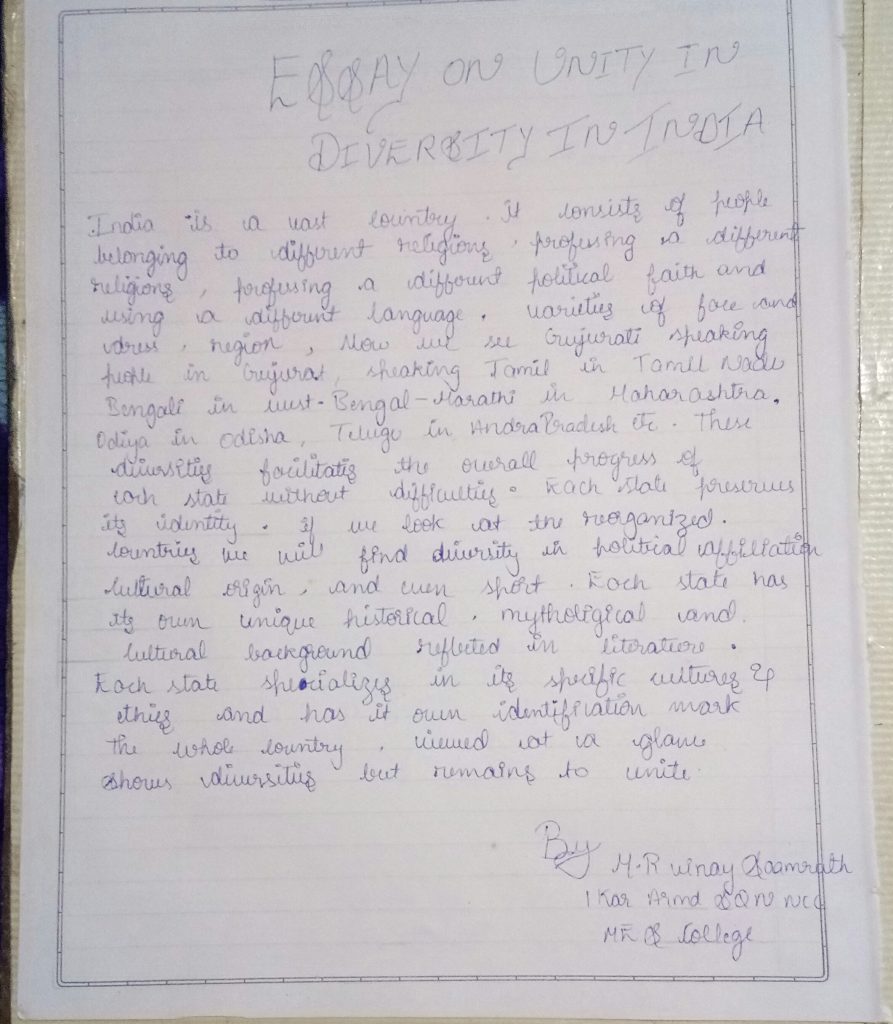 ESSAY ON UNITY IN
DIVERSITY IN INDIA
India is a vast country. It consists of people
belonging to different religions, profusing a different
religions, profusing a different political faith and
using a different language. varieties of face and
dress, region, Now we see Gujurati speaking
people in Gujurat, speaking Tamil in Tamil Nadu
Bengali in west-Bengal-Marathi in Maharashtra.
Odiya in Odisha, Telugu in AndraPradesh etc. These
diversities facilitatis the overall progress of
each state without difficulties. Each state preserves
its identity. if we look at the reorganized.
countries we will find diversity in political affiliation
cultural origin, and even sport. Each state has
its own unique historical, mytholigical and.
cultural background reflected in literature.
Each state specializes in its specific cultures &
ethics and has it own identification mark
the whole country, viewed at a glance
shows diversities but remains to unite.
By
M.R vinay Saamrath
1 Kar Armd SQN NCC
MES College